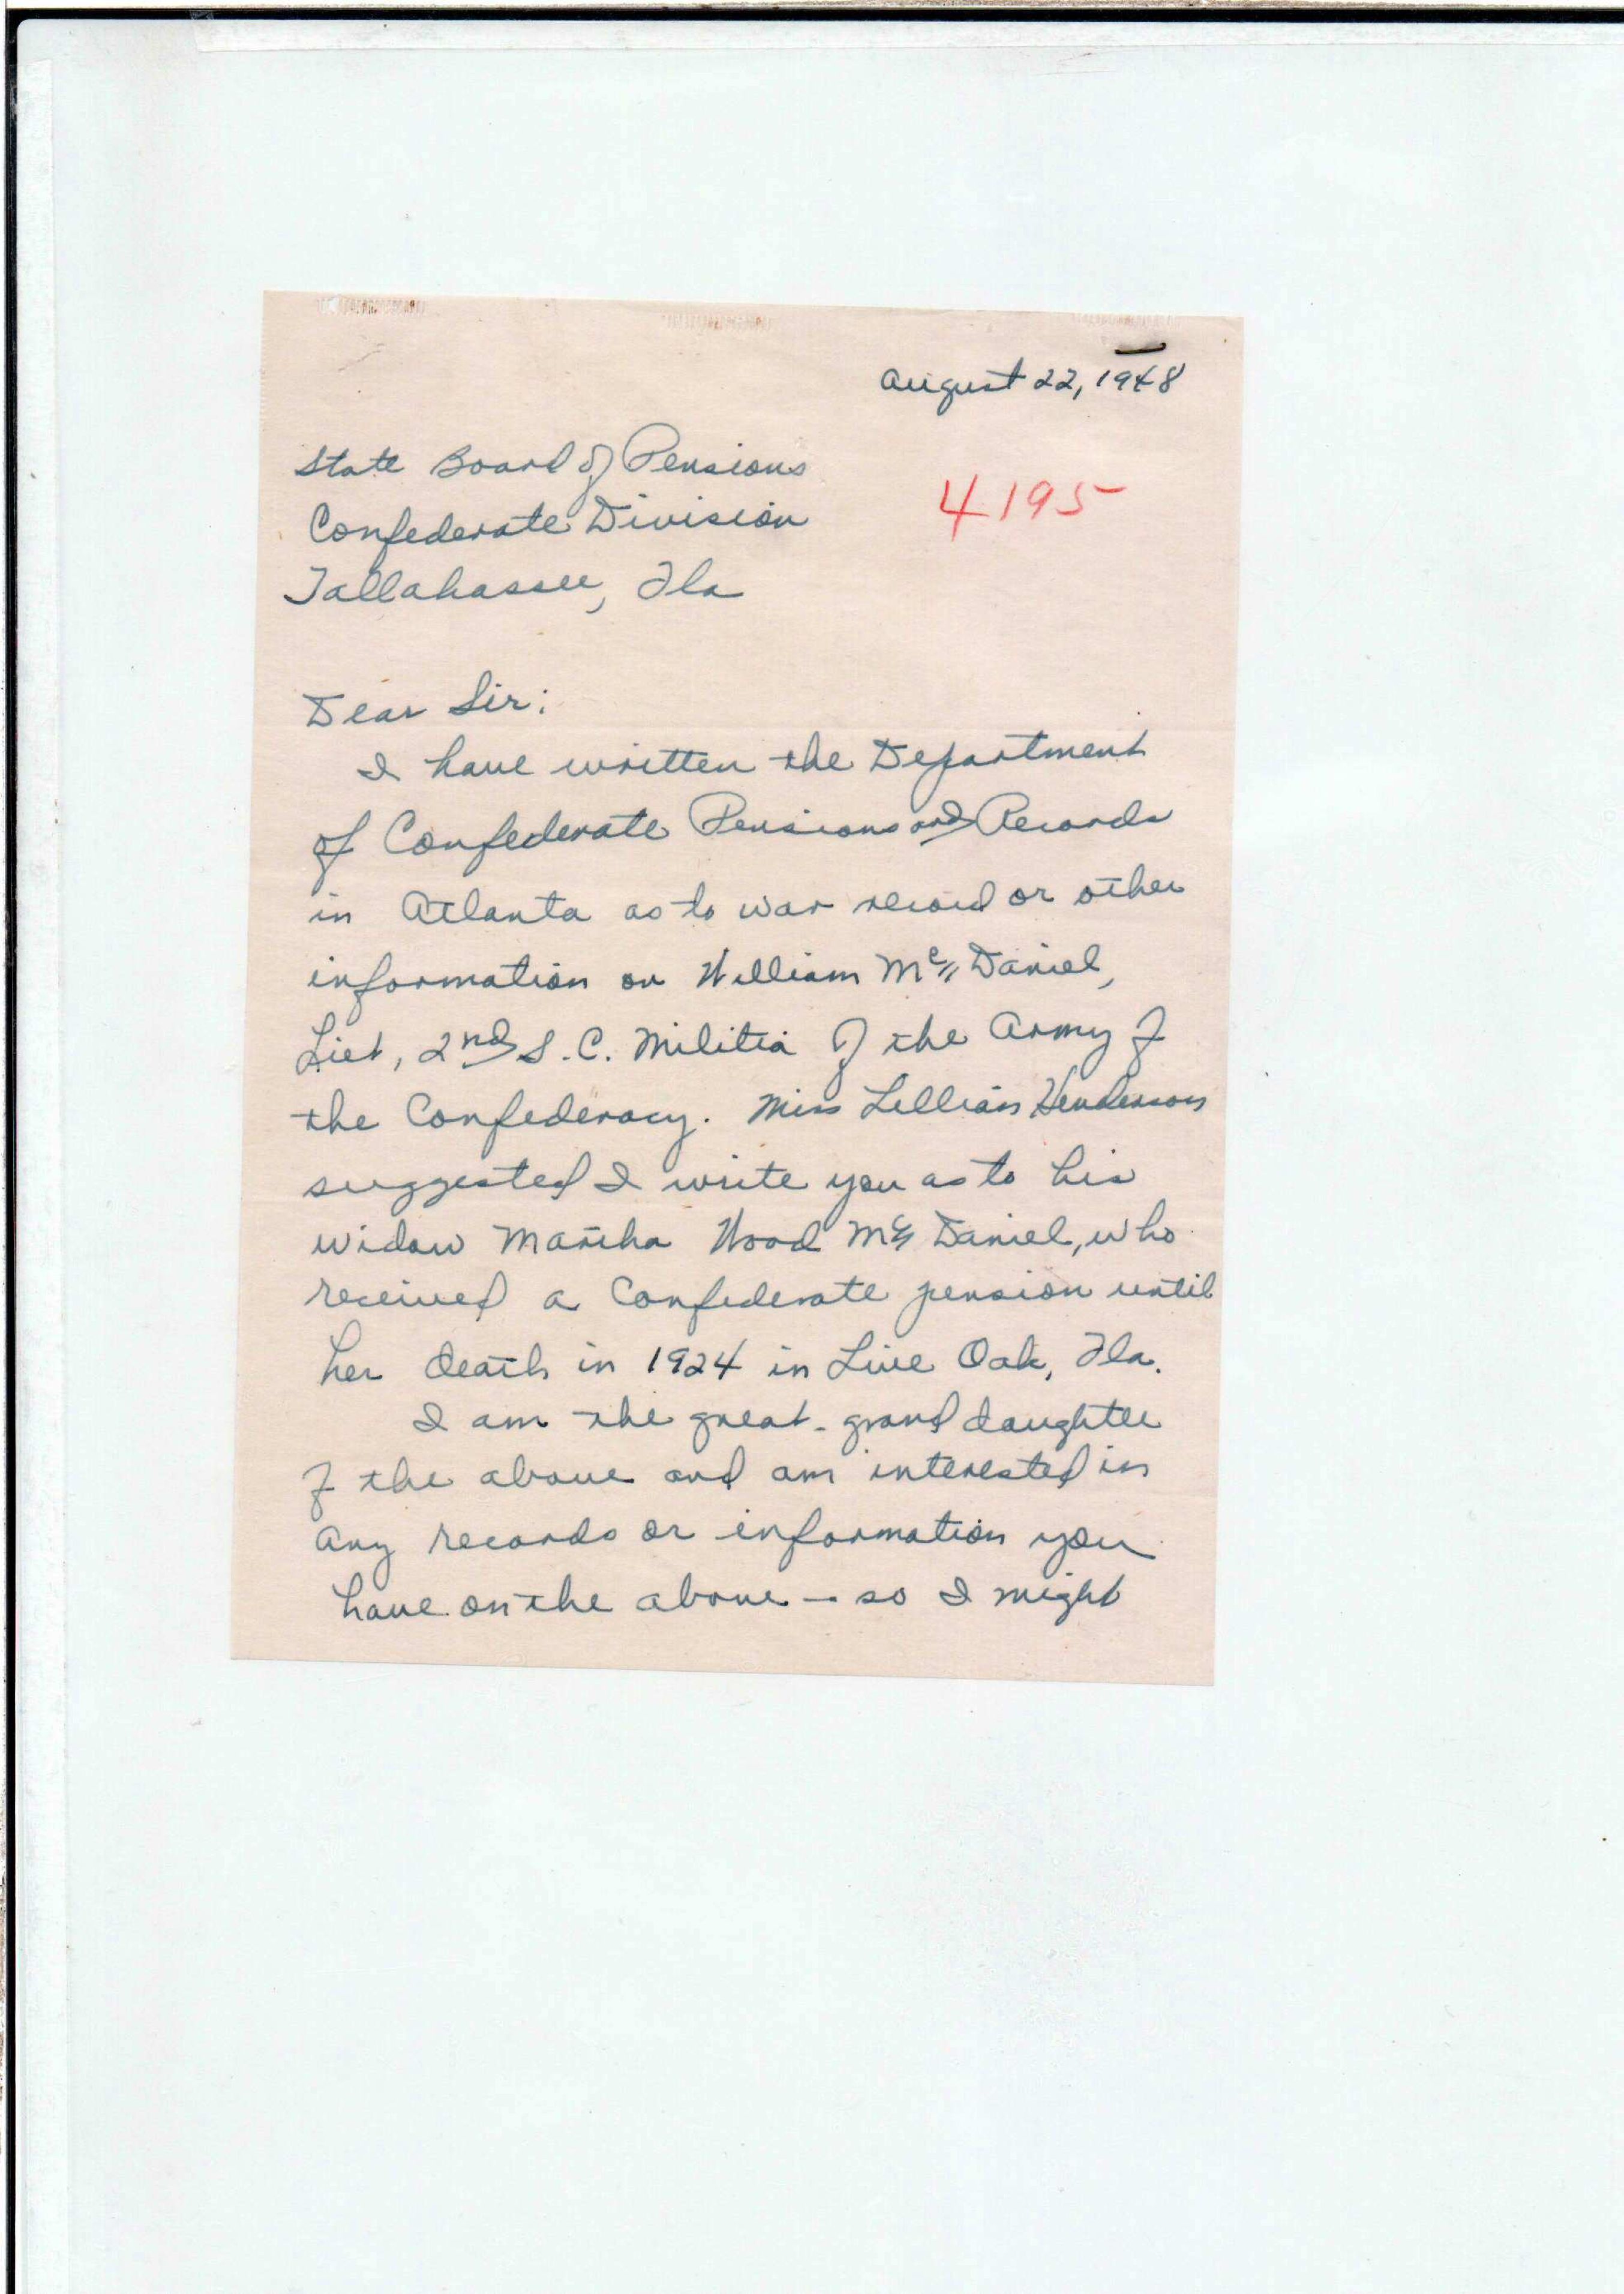 August 22, 1948
State Board of Pensions
4195
Confederate Division
Tallahassee, Fla
Dear Sir:
I have written the Department
of Confederate Pensions and Records
in Atlanta as to war record or other
information on William Mc Daniel,
Liet, 2nd S.C. Militia of the Army of
the Confederacy. Miss Lillian Henderson
suggested I write you as to his
widow Martha Wood Mc Daniel, who
received a Confederate pension until
her death in 1924 in Live Oak, Fla.
I am the great-grand daughter
of the above and am interested in
any records or information you
have on the above - so I might